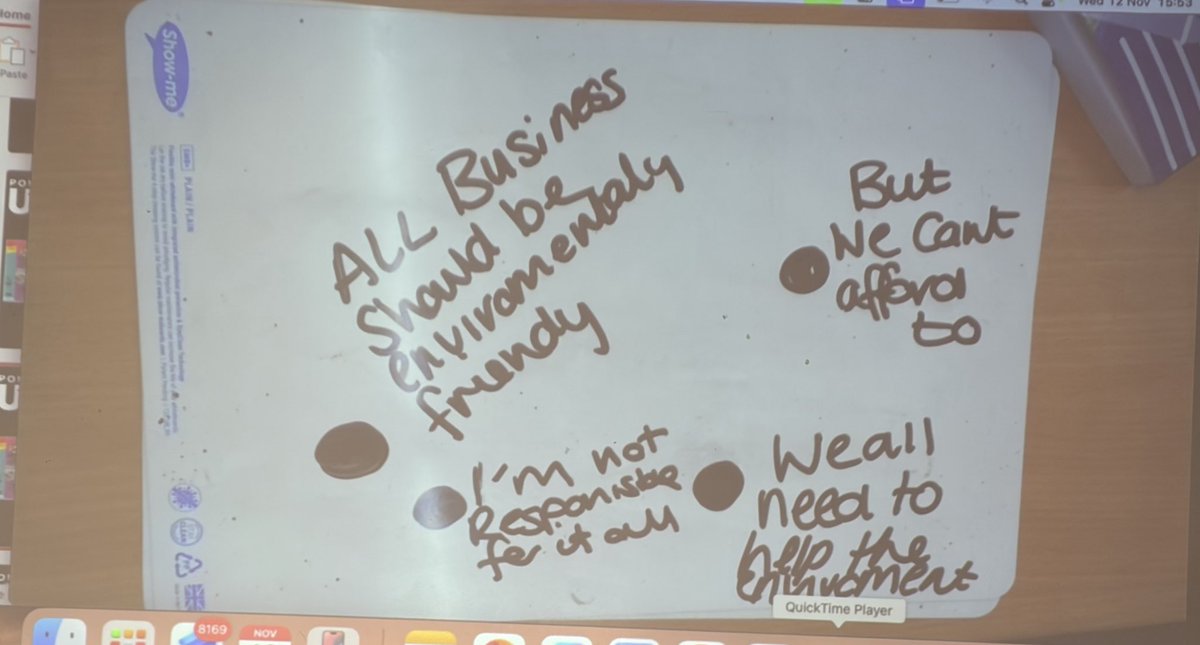 Home
Paste
Wed 12 Nov 15:53
Show-me
PLAIN / PLAIN
ALL Business
Should be
enviromentaly
friendy
But
We Cant
afford
to
I'm not
Responisble
for it all
We all
need to
help the
QuickTime Player
8169
NOV